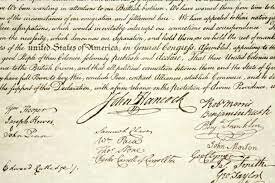 been wanting in attentions to our British brethren. We have warned them from time
of the circumstances of our emigration and settlement here. We have appealed to their native
these usurpations, which would inevitably interrupt our connections and
necessity, which denounces our Separation, and hold them, as we hold the rest of mankind
united States of America, in General Congress, Assembled, appealing to the
good People of these Colonies, solemnly publish and declare, That these United Colonies
to the British Crown, and that all political connection between them and the State of
have full Power to levy War, conclude Peace, contract Alliances, establish Commerce, and to
the support of this Declaration, with a firm reliance on the Protection of divine Providence,
John Hancock
Wm Hooper
Joseph Hewes,
John Penn
Edward Rutledge
Samuel Chase
Wm Paca
Thos Stone
Charles Carroll of Carrollton
Robt Morris
Benjamin Rush
Benj Franklin
John Morton
Geo Clymer
Jas Smith
Geo Taylor